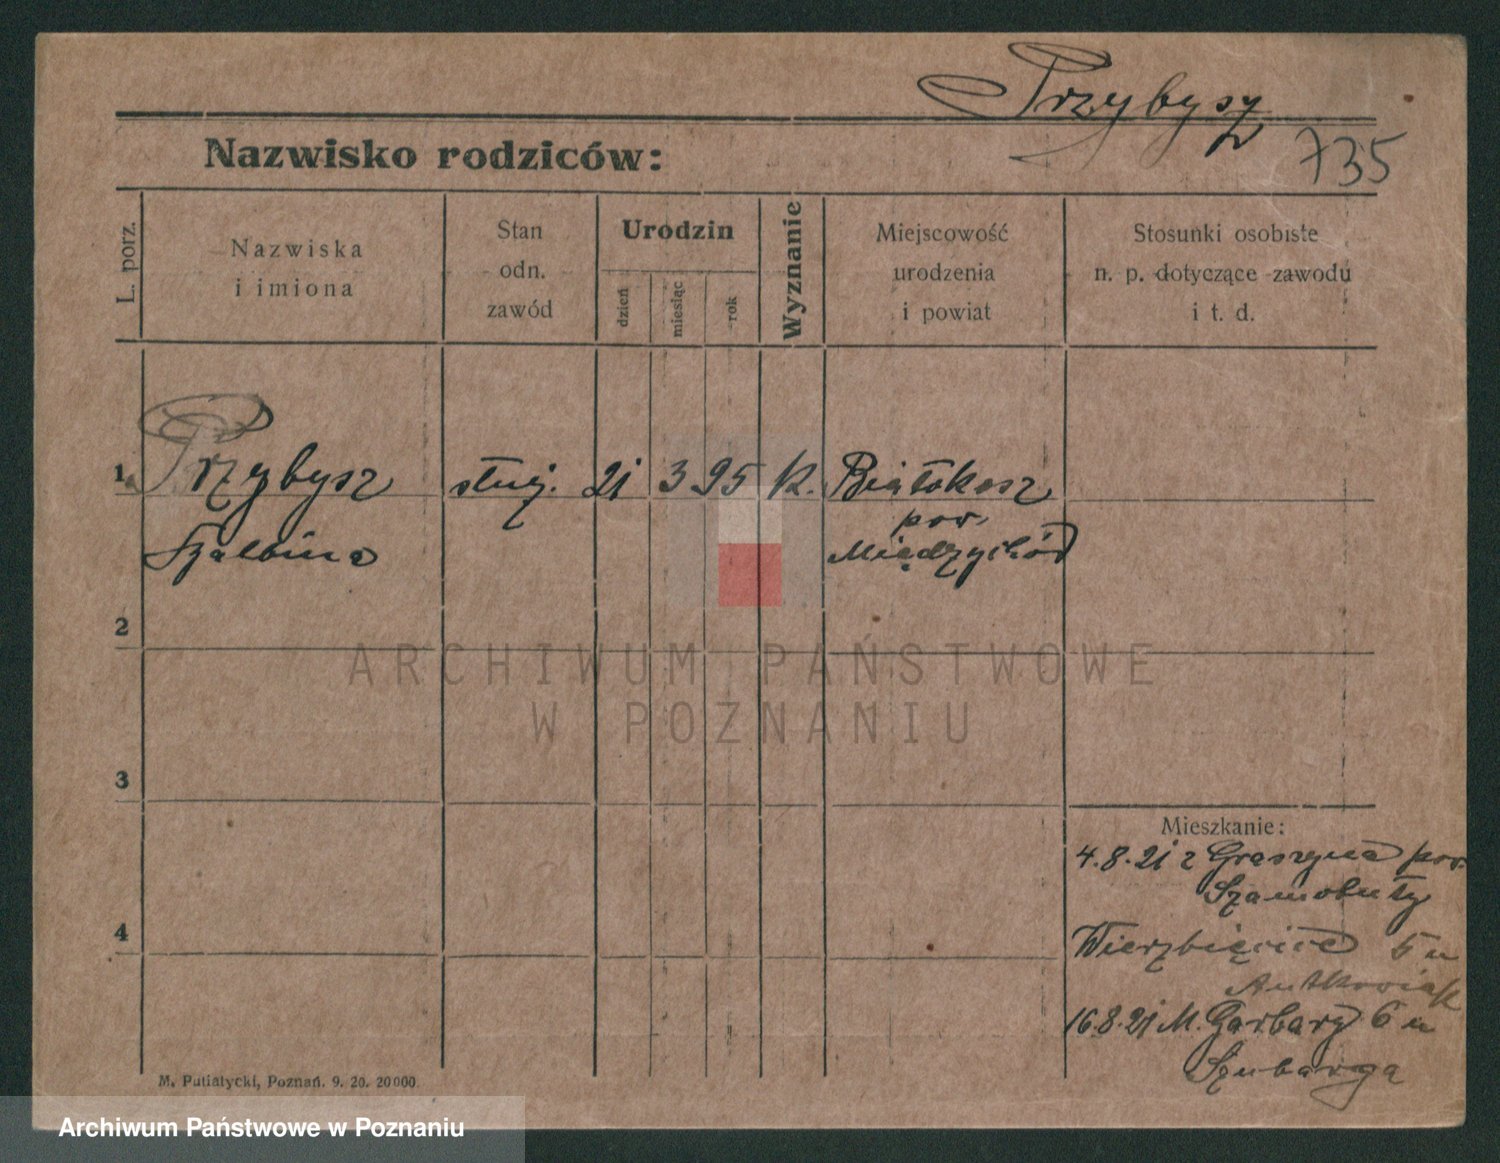 Przybysz
735
Nazwisko rodziców:
L. porz.
Nazwiska
i imiona
Stan
odn.
zawód
Urodzin
dzień
miesiąc
rok
Wyznanie
Miejscowość
urodzenia
i powiat
Stosunki osobiste
n. p. dotyczące zawodu
i t. d.
1. Przybysz służ. 21 3 95 k. Białokosz
pow.
Międzychód
2
ARCHIWUM PAŃSTWOWE
W POZNANIU
3
Mieszkanie:
4.8.21 z pow.
Szamotuły
4
Wierzbięcice 5 u
Antkowiak
16.8.21 M. Garbary 6 u
M. Putiatycki, Poznań. 9. 20. 20000.
Archiwum Państwowe w Poznaniu